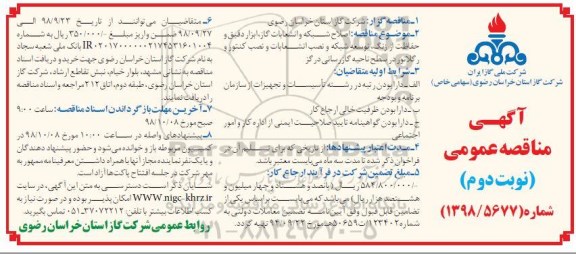 شرکت ملی گاز ایران
شرکت گاز استان خراسان رضوی (سهامی خاص)
آگهی
مناقصه عمومی
(نوبت دوم)
شماره (۱۳۹۸/۵۶۷۷)
۱-مناقصه گزار: شرکت گاز استان خراسان رضوی
۲-موضوع مناقصه: اصلاح شبکه و انشعابات گاز، ابزار دقیق و
حفاظت از زنگ، توسعه شبکه و نصب انشعابات و نصب کنتور و
رگلاتور، در سطح ناحیه گازرسانی درگز
۳-شرایط اولیه متقاضیان:
الف-دارا بودن رتبه در رشته تاسیسات و تجهیزات از سازمان
برنامه و بودجه
ب-دارا بودن ظرفیت خالی ارجاع کار
ج-دارا بودن گواهینامه تایید صلاحیت ایمنی از اداره کار و امور
اجتماعی
۴-مدت اعتبار پیشنهادها: از تاریخی که برای تسلیم آن در
فراخوان ذکر شده تا مدت سه ماه می بایست معتبر باشد.
۵-مبلغ تضمین شرکت در فرآیند ارجاع کار:
۵۸۴/۸۰۰/۰۰۰/- ریال (پانصد و هشتاد و چهار میلیون و
هشتصد هزار ریال) می باشد که می بایست بر اساس یکی از
تضامین قابل قبول وفق آیین نامه تضمین معاملات دولتی به
شماره ۱۲۳۴۰۲/ت۵۰۶۵۹ه مورخ ۹۴/۰۹/۲۲ تهیه گردد.
۶-متقاضیان می توانند از تاریخ ۹۸/۹/۲۳ الی
۹۸/۰۹/۲۷ ضمن واریز مبلغ ۳۵۰/۰۰۰/- ریال به شماره
IR۰۲۰۱۷۰۰۰۰۰۰۲۱۷۴۵۳۱۶۰۱۰۰۴ بانک ملی شعبه سجاد
به نام شرکت گاز استان خراسان رضوی جهت خرید و دریافت اسناد
مناقصه به نشانی مشهد، بلوار خیام، نبش تقاطع ارشاد، شرکت گاز
استان خراسان رضوی، طبقه دوم، اتاق ۲۱۲ مراجعه و اسناد مناقصه
را دریافت نمایند.
۷-آخرین مهلت بازگرداندن اسناد مناقصه: ساعت ۹:۰۰
صبح مورخ ۹۸/۱۰/۰۸
۸-پیشنهادهای واصله در ساعت ۱۰:۰۰ مورخ ۹۸/۱۰/۰۸ در
کمیسیون مربوطه باز و خوانده می شود و حضور پیشنهاد دهندگان
و یا یک نفر نماینده مجاز آنها با همراه داشتن معرفینامه ممهور به
مهر شرکت در جلسه افتتاح پاکت ها آزاد است.
شایان ذکر است دسترسی به متن این آگهی، در سایت
WWW.nigc-khrz.ir امکان پذیر بوده و در صورت نیاز به
اطلاعات بیشتر با تلفن: ۳۷۰۷۲۲۱۲-۰۵۱ تماس بگیرید.
روابط عمومی شرکت گاز استان خراسان رضوی